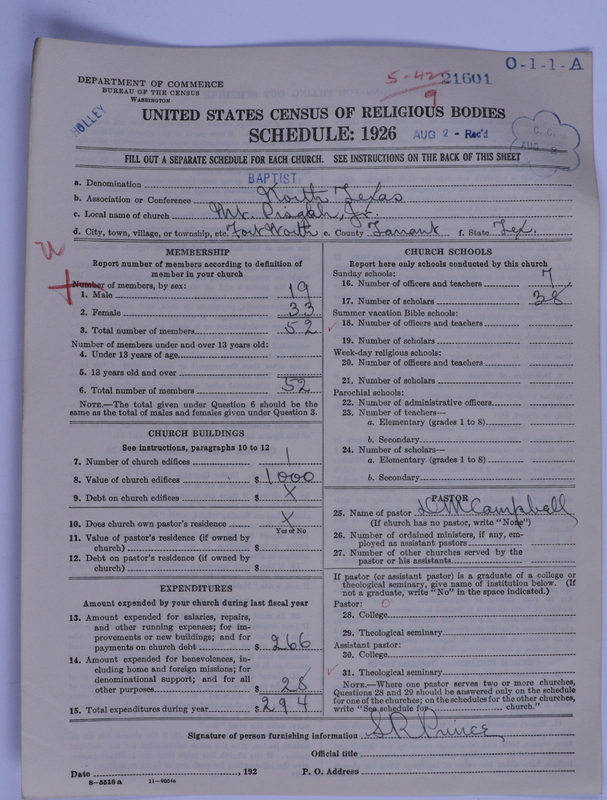 O-1-1-A
5-42 21601
9
DEPARTMENT OF COMMERCE
BUREAU OF THE CENSUS
WASHINGTON
HOLLEY
UNITED STATES CENSUS OF RELIGIOUS BODIES
SCHEDULE: 1926 AUG 2 - Rec'd
C. C.
AUG
FILL OUT A SEPARATE SCHEDULE FOR EACH CHURCH. SEE INSTRUCTIONS ON THE BACK OF THIS SHEET
a. Denomination BAPTIST
b. Association or Conference North Texas
c. Local name of church Mt. Pisgah, Jr.
d. City, town, village, or township, etc. Fort Worth e. County Tarrant f. State Tex.
MEMBERSHIP
Report number of members according to definition of
member in your church
Number of members, by sex:
1. Male 19
2. Female 33
3. Total number of members 52
Number of members under and over 13 years old:
4. Under 13 years of age
5. 13 years old and over
6. Total number of members 52
NOTE.—The total given under Question 6 should be the
same as the total of males and females given under Question 3.
CHURCH BUILDINGS
See instructions, paragraphs 10 to 12
7. Number of church edifices 1
8. Value of church edifices $ 1000
9. Debt on church edifices $ X
10. Does church own pastor's residence X
Yes or No
11. Value of pastor's residence (if owned by
church) $
12. Debt on pastor's residence (if owned by
church) $
EXPENDITURES
Amount expended by your church during last fiscal year
13. Amount expended for salaries, repairs,
and other running expenses; for im-
provements or new buildings; and for
payments on church debt $ 266
14. Amount expended for benevolences, in-
cluding home and foreign missions; for
denominational support; and for all
other purposes $ 28
15. Total expenditures during year $ 294
CHURCH SCHOOLS
Report here only schools conducted by this church
Sunday schools:
16. Number of officers and teachers 7
17. Number of scholars 38
Summer vacation Bible schools:
18. Number of officers and teachers
19. Number of scholars
Week-day religious schools:
20. Number of officers and teachers
21. Number of scholars
Parochial schools:
22. Number of administrative officers
23. Number of teachers—
a. Elementary (grades 1 to 8)
b. Secondary
24. Number of scholars—
a. Elementary (grades 1 to 8)
b. Secondary
PASTOR
25. Name of pastor D M Campbell
(If church has no pastor, write "None")
26. Number of ordained ministers, if any, em-
ployed as assistant pastors
27. Number of other churches served by the
pastor or his assistants
If pastor (or assistant pastor) is a graduate of a college or
theological seminary, give name of institution below. (If
not a graduate, write "No" in the space indicated.)
Pastor: O
28. College
29. Theological seminary
Assistant pastor:
30. College
31. Theological seminary
NOTE.—Where one pastor serves two or more churches,
Questions 28 and 29 should be answered only on the schedule
for one of the churches; on the schedules for the other churches,
write "See schedule for church."
Signature of person furnishing information S R Prince
Official title
Date , 192 P. O. Address
8-5518a 11-9034a